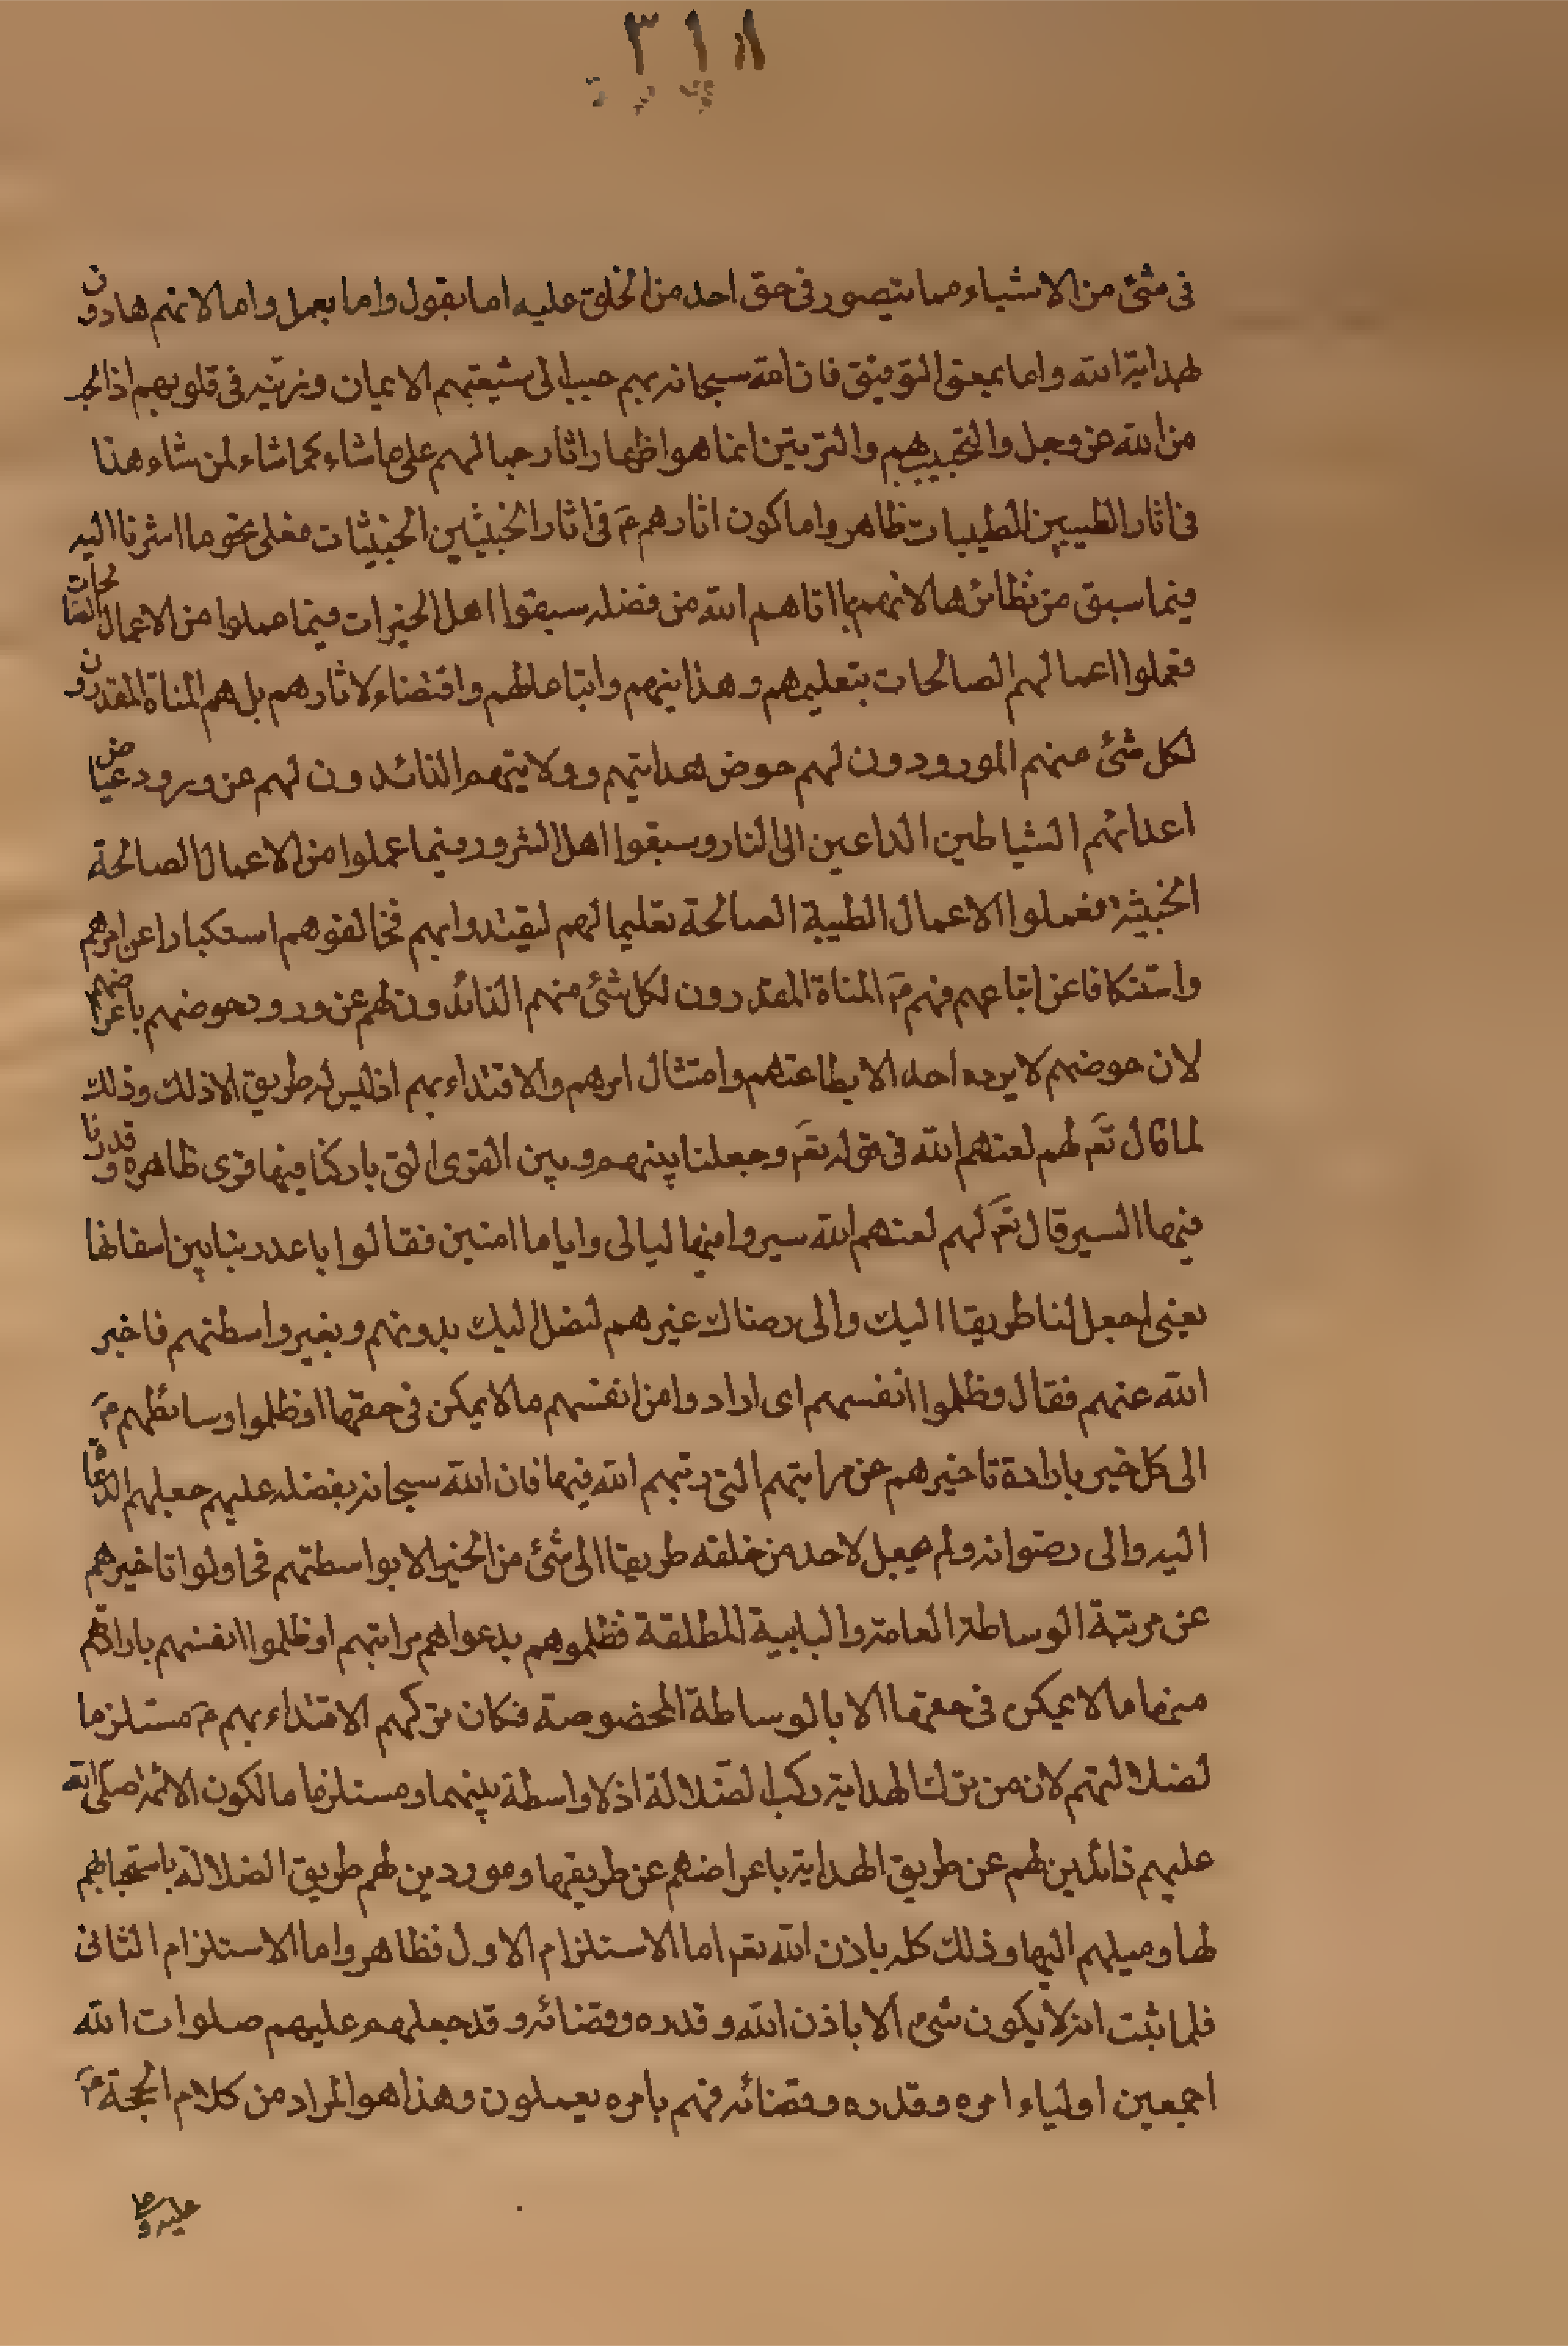 ٣١٨
فى شئ من الاشياء مما يتصور فى حق احد من الخلق عليه اما بقول واما بعمل واما لانهم هادون
لهداية الله واما بمعنى التوفيق فان الله سبحانه بهم حبب الى شيعتهم الايمان وزينه فى قلوبهم اذ الخير
من الله عز وجل والتحبيب بهم والتزيين انما هو اظهار اثار حبا لهم على ما شاء كما شاء لمن شاء وهذا
فى اثار الطيبين الطيبات ظاهر واما كون اثارهم فى اثار الخبيثين الخبيثات فعلى نحو ما اشرنا اليه
فيما سبق من نظائرها لانهم بما اتاهم الله من فضله سبقوا اهل الخيرات فيما عملوا من الاعمال الصالحات
فعملوا اعمالهم الصالحات بتعليمهم وهدايتهم واتباعا لهم واقتضاء لاثارهم بل هم المناة المقدرون
لكل شئ منهم الموردون لهم حوض هدايتهم وولايتهم الذائدون لهم عن ورود حياض
اعدائهم الشياطين الداعين الى النار وسبقوا اهل الشرور فيما عملوا من الاعمال الصالحة
الخبيثة فعملوا الاعمال الطيبة الصالحة تعليما لهم ليقتدوا بهم فخالفوهم استكبارا عن امرهم
واستنكافا عن اتباعهم فهم المناة المقدرون لكل شئ منهم الذائدون لهم عن ورود حوضهم باعراضهم
لان حوضهم لا يرده احد الا بطاعتهم وامتثال امرهم والاقتداء بهم اذ ليس له طريق الا ذلك وذلك
لما قال تعَ لهم لعنهم الله فى قوله تعَ وجعلنا بينهم وبين القرى التى باركنا فيها قرى ظاهرة وقدرنا
فيها السير قال تعَ لهم لعنهم الله سيروا فيها ليالى واياما امنين فقالوا باعد ربنا بين اسفارنا
يعنى اجعل لنا طريقا اليك والى رضاك غيرهم لنصل اليك بدونهم وبغير واسطتهم فاخبر
الله عنهم فقال وظلموا انفسهم اى ارادوا من انفسهم ما لا يمكن فى حقها اوظلموا وسائطهم
الى كل خير بارادة تاخيرهم عن مراتبهم التى رتبهم الله فيها فان الله سبحانه بفضله عليهم جعلهم الدعاة
اليه والى رضوانه ولم يجعل لاحد من خلقه طريقا الى شئ من الخير الا بواسطتهم فحاولوا تاخيرهم
عن مرتبة الوساطة العامة والبابية المطلقة فظلموهم بدعواهم مراتبهم اوظلموا انفسهم بارادتهم
منها ما لا يمكن فى حقها الا بالوساطة المخصوصة فكان تركهم الاقتداء بهم مستلزما
لضلالتهم لان من ترك الهداية ركب الضلالة اذ لا واسطة بينهما ومستلزما ما لكون الائمة صلى الله
عليهم ذائدين لهم عن طريق الهداية باعراضهم عن طريقها وموردين لهم طريق الضلالة باستحبابهم
لها وميلهم اليها وذلك كله باذن الله تعَ اما الاستلزام الاول فظاهر واما الاستلزام الثانى
فلما ثبت انه لا يكون شئ الا باذن الله وقدره وقضائه وقد جعلهم عليهم صلوات الله
اجمعين اولياء امره وقدره وقضائه فهم بامره يعملون وهذا هو المراد من كلام الحجة